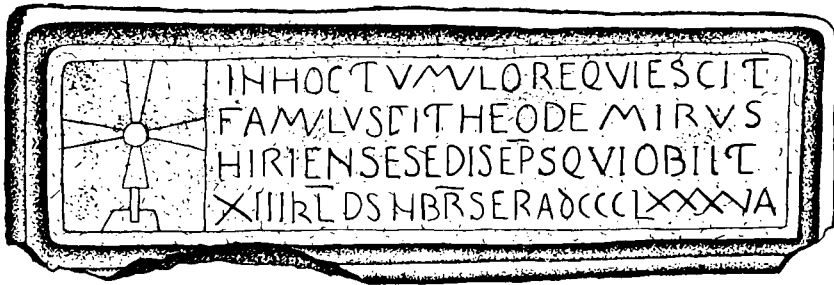 INHOCTVMVLOREQVIESCIT
FAMVLVSDITHEODEMIRVS
HIRIENSESEDISEPSQVIOBIIT
XIIIKLDSNBRSERADCCCLXXXVA